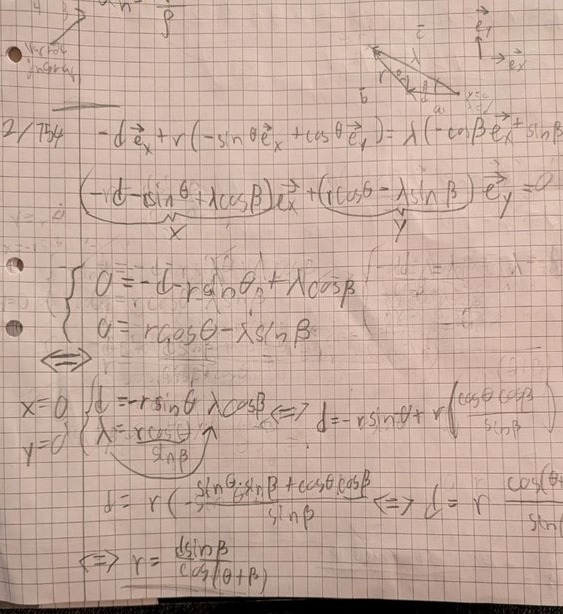 ρ
vector
c
e_y
λ
→ e_x
r
b
2/754 -d e_x + r(-sinθ e_x + cosθ e_y) = λ(-cosβ e_x + sinβ
(-d - r sinθ + λcosβ) e_x + (r cosθ - λ sinβ) e_y = 0
X Y
{ 0 = -d - r sinθ + λ cosβ
0 = r cosθ - λ sinβ
⇔
x=0 { d = -r sinθ λ cosβ ⇔ d = -r sinθ + r (cosθ cosβ / sinβ)
y=0 { λ = r cosθ / sinβ
d = r (-sinθ·sinβ + cosθ·cosβ / sinβ ⇔ d = r cos(θ+ / sin(
⇔ r = d sinβ / cos(θ+β)